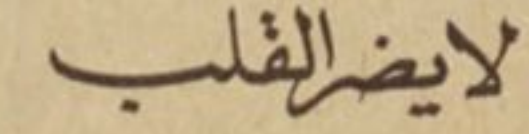 لا يضر القلب